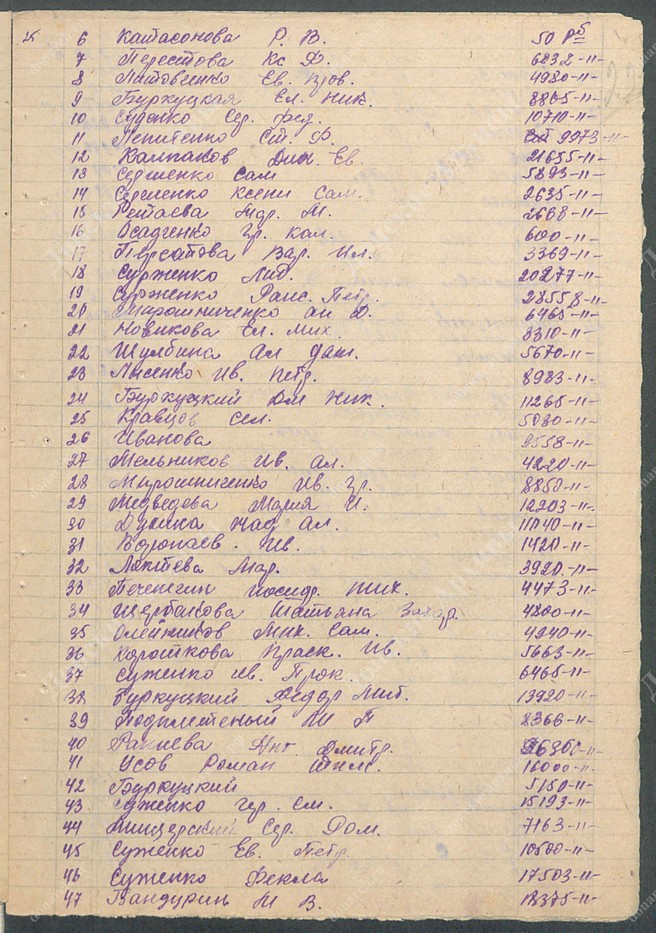 6 Катасонова Р. В. 50 Рб
7 Перестова Кс Ф. 6232-11-
8 Литовченко Ев. Пров. 4980-11-
9 Буркуцкая Ел. Ник. 8805-11-
10 Суденко Сер. Фед. 10710-11-
11 Лепитенко Ст. Ф. 9973-11-
12 Калпаков Дин. Ев. 21655-11-
13 Сергиенко Сам 5893-11-
14 Сергиенко Ксени Сам. 2635-11-
15 Ретаева Мар. М. 2668-11-
16 Осадченко Гр. Кал. 600-11-
17 Персатова Вар. Ил. 3369-11-
18 Сурженко Лид. 20277-11-
19 Сурженко Раис. Петр. 28558-11-
20 Мирошниченко Ан Д. 6465-11-
21 Новикова Ел. Мих. 8310-11-
22 Шулбина Ал Дан. 5670-11-
23 Лысенко Ив. Петр. 8983-11-
24 Буркуцкий Дм Ник. 11265-11-
25 Кравцов Сел. 5030-11-
26 Иванова 9558-11-
27 Мельников Ив. Ал. 4220-11-
28 Мирошниченко Ив. Гр. 8850-11-
29 Медведева Мария И. 12203-11-
30 Душка Над Ал. 11040-11-
31 Воропаев. Ив. 1420-11-
32 Лактева Мар. 3920-11-
33 Печенеин Иосиф. Ник. 4473-11-
34 Щербакова Татьяна Захар. 4200-11-
35 Олейников Мих. Сам. 4940-11-
36 Короткова Праск. Ив. 5663-11-
37 Суженко Ив. Прок. 6465-11-
38 Буркуцкий Федор Мит. 13920-11-
39 Подплетеный М П 8366-11-
40 Ракиева Ант Дмитр. 26300-11-
41 Усов Роман Фил. 16000-11-
42 Буркуцкий 5150-11-
43 Суженко Гер. См. 15193-11-
44 Сер. Ром. 7163-11-
45 Суженко Ев. Петр. 10500-11-
46 Суженко Фекла 17503-11-
47 Вандурин М В. 18375-11-